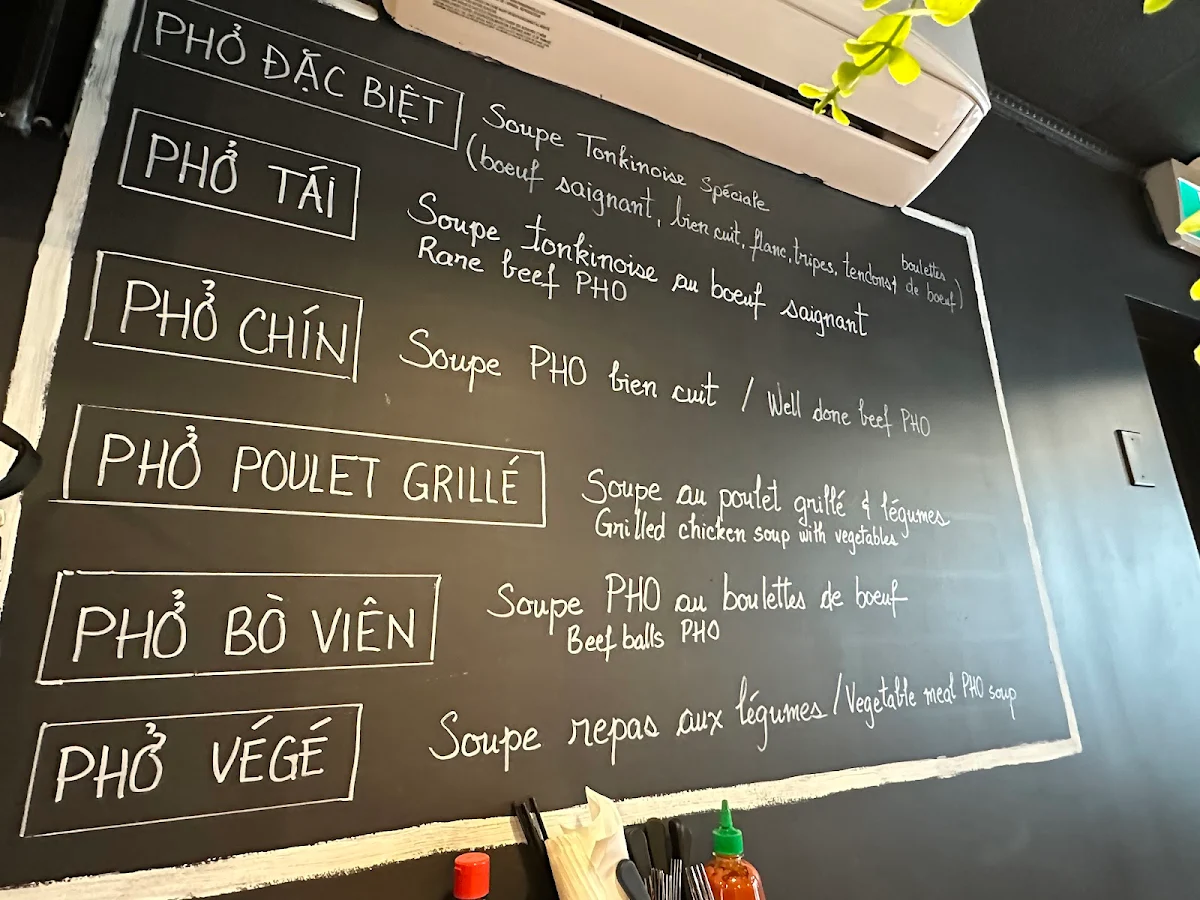 PHỞ ĐẶC BIỆT
Soupe Tonkinoise Spéciale
(boeuf saignant, bien cuit, flanc, tripes, tendons & boulettes de boeuf)
PHỞ TÁI
Soupe tonkinoise au boeuf saignant
Rare beef PHO
PHỞ CHÍN
Soupe PHO bien cuit / Well done beef PHO
PHỞ POULET GRILLÉ
Soupe au poulet grillé & légumes
Grilled chicken soup with vegetables
PHỞ BÒ VIÊN
Soupe PHO au boulettes de boeuf
Beef balls PHO
PHỞ VÉGÉ
Soupe repas aux légumes / Vegetable meal PHO soup